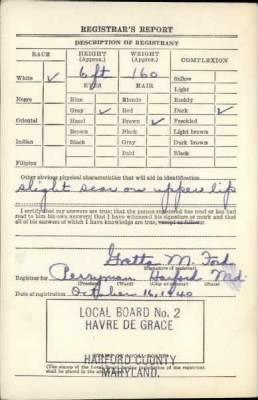 REGISTRAR'S REPORT
DESCRIPTION OF REGISTRANT
RACE HEIGHT (Approx.) WEIGHT (Approx.) COMPLEXION
6 ft 160
White ✓ EYES HAIR Sallow
Light
Negro Blue Blonde Ruddy
Gray ✓ Red Dark ✓
Oriental Hazel Brown ✓ Freckled
Brown Black Light brown
Indian Black Gray Dark brown
Bald Black
Filipino
Other obvious physical characteristics that will aid in identification
slight scar on upper lip
I certify that my answers are true; that the person registered has read or has had
read to him his own answers; that I have witnessed his signature or mark and that
all of his answers of which I have knowledge are true, except as follows:
M. Ford
(Signature of registrar)
Registrar for Perryman Harford Md.
(Precinct) (Ward) (City or county) (State)
Date of registration October 16, 1940
LOCAL BOARD No. 2
HAVRE DE GRACE
HARFORD COUNTY
MARYLAND.
(The stamp of the Local Board having jurisdiction of the registrant
shall be placed in the above space.)